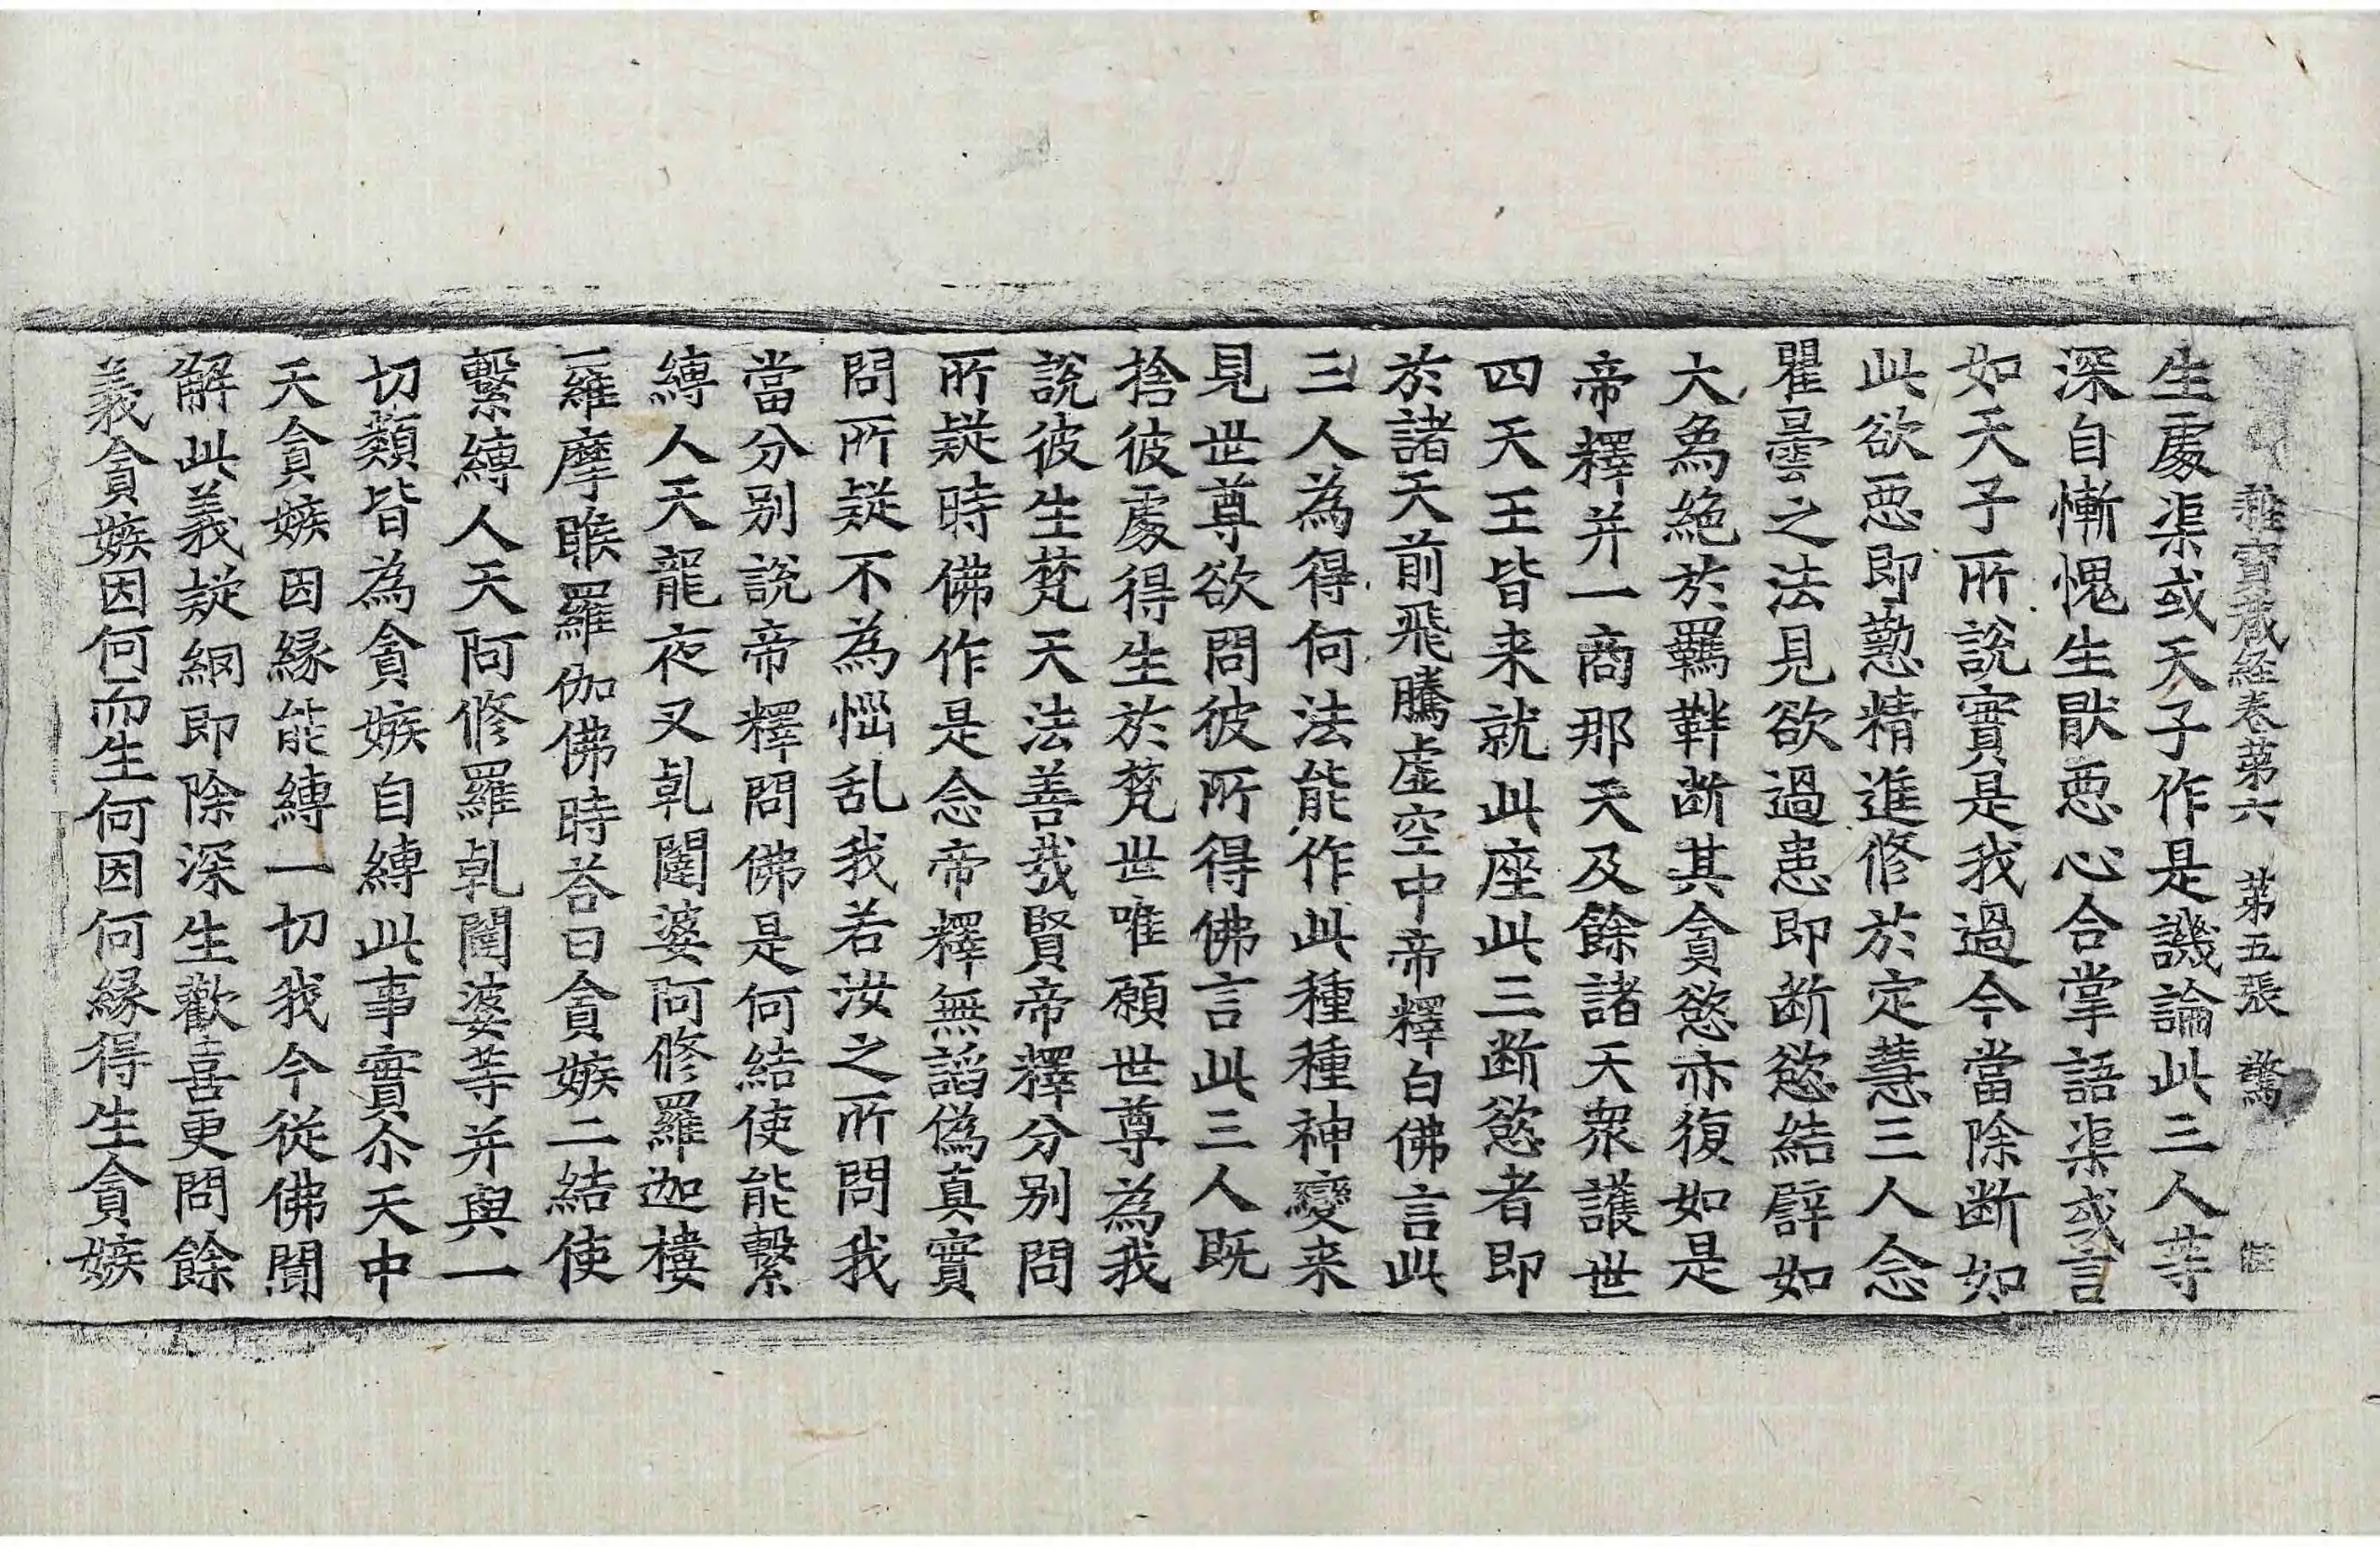 雜寳藏経卷第六 第五張 驚
生處渠或天子作是譏論此三人等
深自慚愧生猒惡心合掌語渠或言
如天子所說實是我過今當除断如
此欲惡即懃精進修於定慧三人念
瞿曇之法見欲過患即断慾結譬如
大象絶於羈靽断其貪慾亦復如是
帝釋并一商那天及餘諸天衆護世
四天王皆来就此座此三断慾者即
於諸天前飛騰虛空中帝釋白佛言此
三人為得何法能作此種種神變来
見世尊欲問彼所得佛言此三人既
捨彼處得生於梵世唯願世尊為我
說彼生梵天法善㢤賢帝釋分别問
所疑時佛作是念帝釋無謟偽真實
問所疑不為惱乱我若汝之所問我
當分别說帝釋問佛是何結使能繫
縛人天龍夜叉乹闥婆阿修羅迦樓
羅摩睺羅伽佛時荅曰貪嫉二結使
繫縛人天阿修羅乹闥婆等并與一
切類皆為貪嫉自縛此事實尒天中
天貪嫉因緣能縛一切我今從佛聞
解此義疑網即除深生歡喜更問餘
義貪嫉因何而生何因何緣得生貪嫉